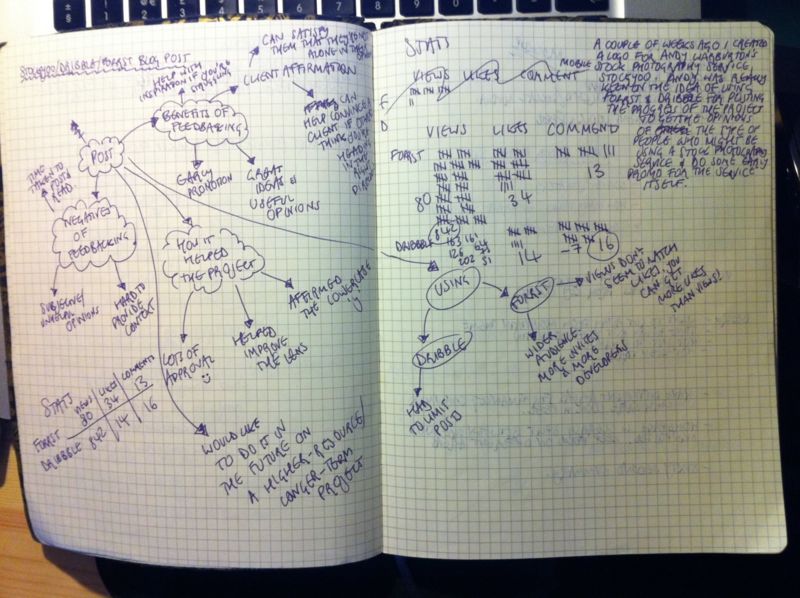 STOCKYOO/DRIBBLE/FORRST BLOG POST
HELP WITH
INSPIRATION IF YOU'RE
STRUGGLING
CAN SATISFY
THEM THAT THEY'RE NOT
ALONE IN
CLIENT AFFIRMATION
CAN
HELP CONVINCE A
CLIENT IF OTHERS
THINK YOU'RE
HEADING
IN THE
RIGHT
BENEFITS OF
FEEDBACKING
POST
TIME
TAKEN TO
POST &
READ
EARLY
PROMOTION
GREAT
IDEAS &
USEFUL
OPINIONS
NEGATIVES
OF
FEEDBACKING
HOW IT
HELPED
THE PROJECT
SUBJECTIVE/
UNHELPFUL
OPINIONS
HARD TO
PROVIDE
CONTEXT
AFFIRMED
THE LOWERCASE
'y'
LOTS OF
APPROVAL
HELPED
IMPROVE
THE LENS
STATS
VIEWS | LIKES | COMMENTS
FORRST 80 34 13
DRIBBBLE 842 14 16
WOULD LIKE
TO DO IT IN
THE FUTURE ON
A HIGHER-RESOURCE/
LONGER-TERM
PROJECT
STATS
VIEWS LIKES COMMENT
F
D
MOBILE
A COUPLE OF WEEKS AGO I CREATED
A LOGO FOR ANDY WARBURTON'S
STOCK PHOTOGRAPHY SERVICE,
STOCKYOO. ANDY WAS REALLY
KEEN ON THE IDEA OF USING
FORRST & DRIBBLE FOR POSTING
THE PROGRESS OF THE PROJECT
TO GET THE OPINIONS
OF THE TYPE OF
PEOPLE WHO MIGHT BE
USING A STOCK PHOTOGRAPHY
SERVICE & DO SOME EARLY
PROMO FOR THE SERVICE
ITSELF.
VIEWS LIKES COMMEND
FORRST
80
34
13
DRIBBBLE
842
163 161
126 64
202 51
14
-7
16
USING
FORRST
VIEWS DON'T
SEEM TO MATCH
LIKES. YOU
CAN GET
MORE LIKES
THAN VIEWS!!
DRIBBLE
WIDER
AUDIENCE.
MORE INVITES
& MORE
DEVELOPERS
HAD
TO LIMIT
POSTS